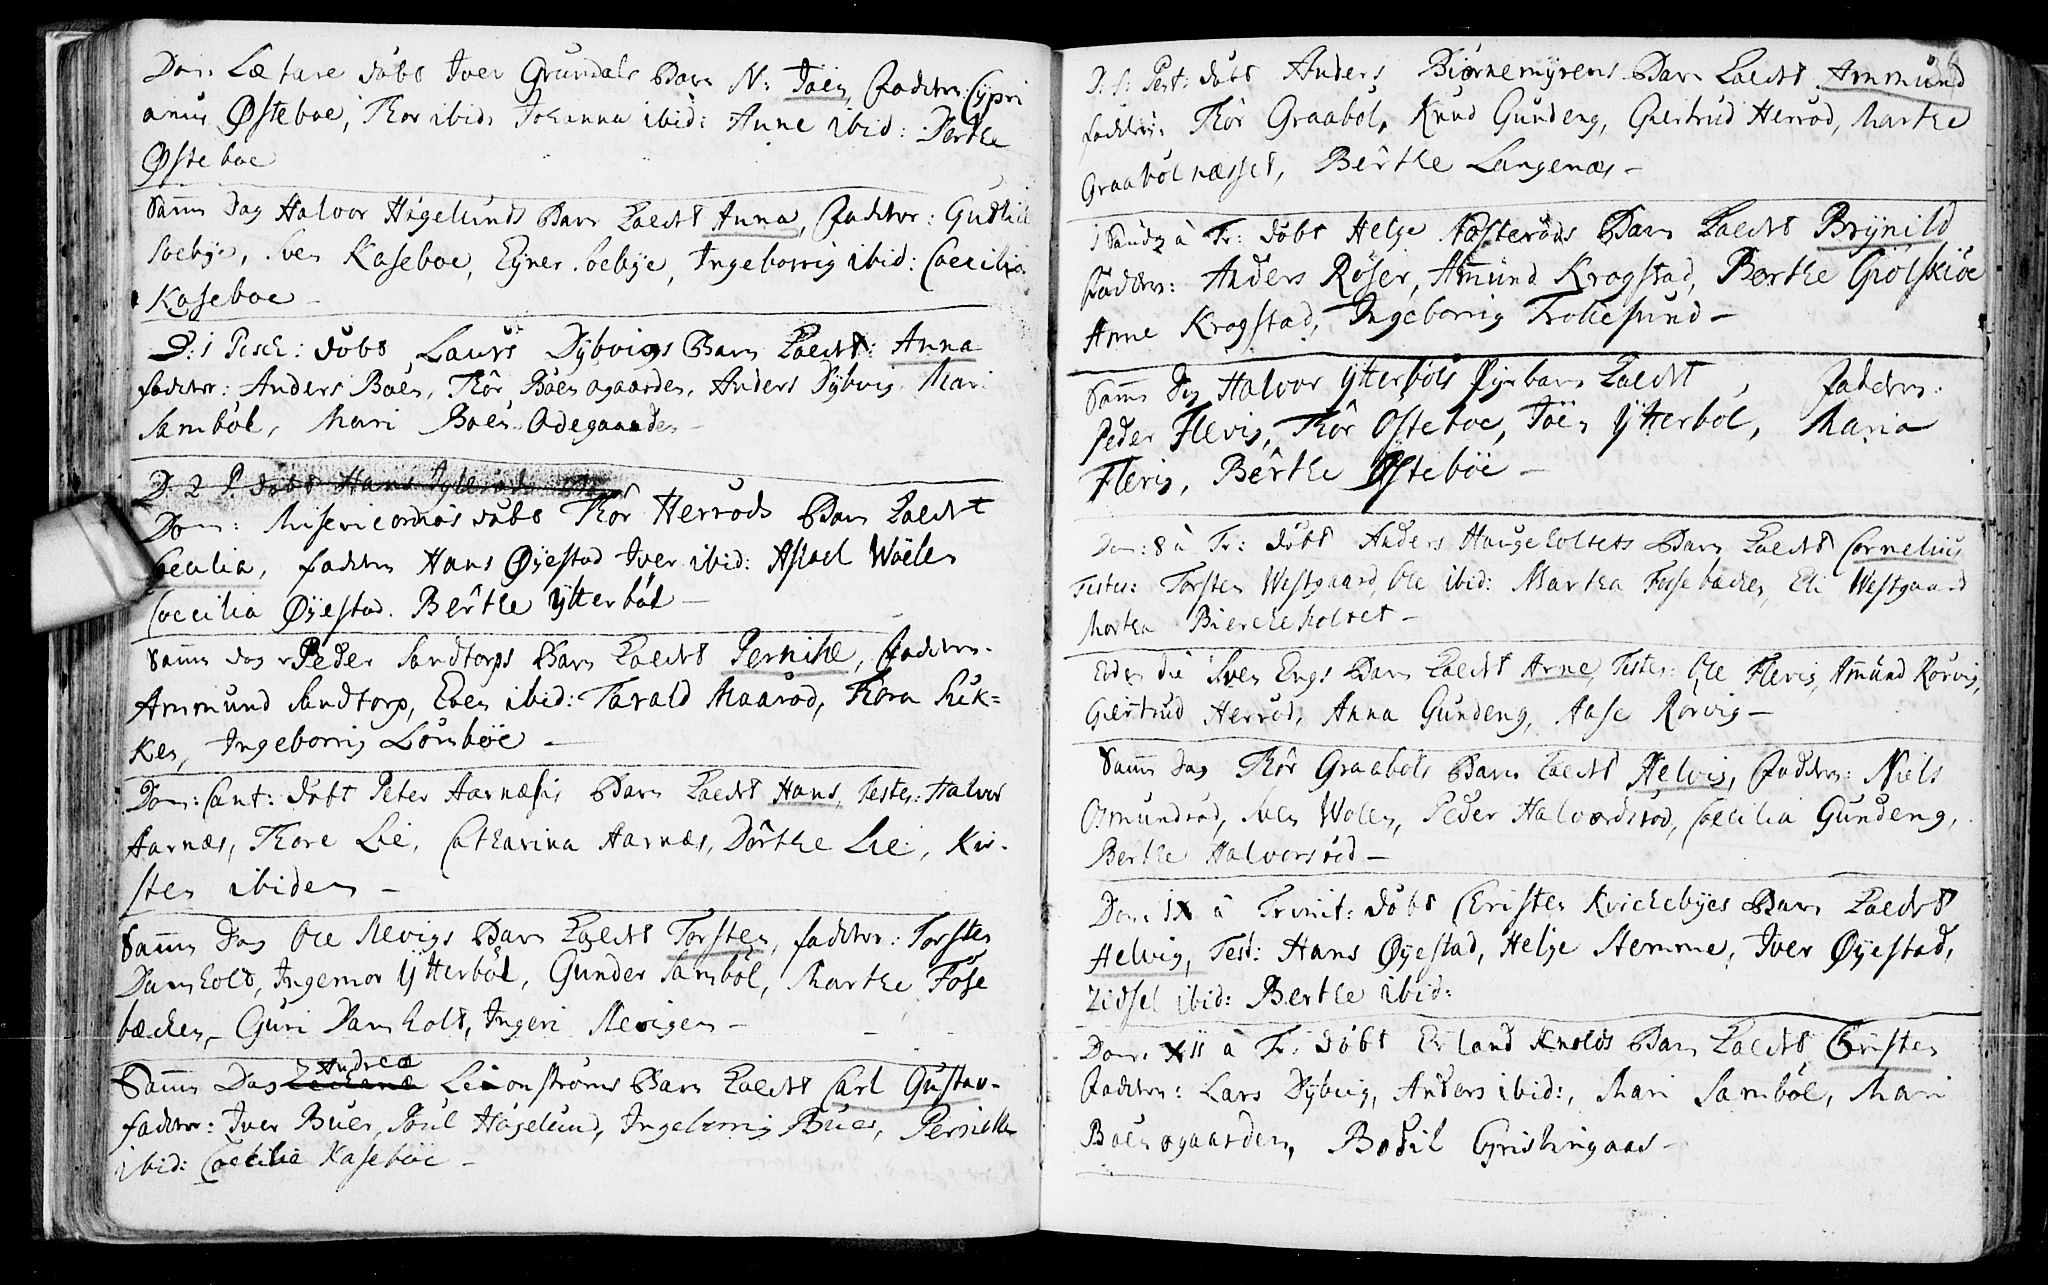 Dom: Lætare döbt Iver Grundals Barn N: Joen, Faddere: Cypri
anus Østeboe, Thor ibid: Johanna ibid: Anne ibid: Berthe
Østeboe
Samme Dag Halvor Högelunds Barn kaldet Anna, Faddere: Gudlich
Soebye, Sven Kaseboe, Eyner Soebye, Ingeborrig ibid: Cæcilia
Kaseboe –
D: 1 Pasch: döbt Laurs Dybvigs Barn kaldet: Anna
faddere: Anders Boen, Thör Boenögaarden, Anders Dybvig, Mari
Samböl, Mari Boen Ödegaarden –
D. 2 P. döbt Hans
Dom: Misericordias döbt Thör Herröds Barn kaldet
Cæcilia, faddere Hans Øyestad Iver ibid: Aslael Wölen
Coecilia Øyestad. Berthe Ytterböl –
Samme dag Peder Sandtorps Barn kaldet Pernille, Faddere.
Ammund Sandtorp, Even ibid: Tarald Maaröd, Thora Suk=
ken, Ingeborrig Lönböe –
Dom: Cant: döbt Peter Aarnæsis Barn kaldet Hans, Testes: Halvor
Aarnæs, Thore Lie, Catharina Aarnæs, Dorthe Lie, Kir-
sten ibidem –
Samme Dag Ole Nevigs Barn kaldet Torsten, faddere: Torsten
Damhold, Ingemor Ytterböl, Gunder Samböl, Marthe Fosse
bæcken, Guri Damholt, Ingeri Nevigen –
Samme Dag Andreæ Leionströms Barn kaldet Carl Gustav –
faddere: Iver Buer, Poul Högelund, Ingeborrig Buer, Pernille
ibid: Cœcilia Kaseböe –
D. 1. Pent: döbt Anders Biörnemyrens Barn kaldet Ammund
faddere: Thör Graaböl, Knud Gundeng, Giertrud Herröd, Marthe
Graabölnæsset, Berthe Langenæs –
1 Söndag à Tr: döbt Helge Nösteröds Barn kaldet Brynild
Faddere: Anders Röser, Amund Krogstad, Berthe Giölskiöe
Anne Krogstad, Ingeborrig Trollesund –
Samme Dag Halvor Ytterböls Pigebarn kaldet , Faddere:
Peder Flevig, Thör Østeboe, Joen Ytterböl, Maria
Flevig, Berthe Østeböe –
Dom: 8 à Tr: döbt Anders Haugeholtets Barn kaldet Cornelius
Testes: Torsten Westgaard, Ole ibid: Martha Fossebæcken, Eli Westgaard
Martha Bierckeholtet –
Eodem die Sven Engs Barn kaldet Arne, Testes: Ole Flevig, Amund Rörvig,
Giertrud Herröd, Anna Gundeng, Aase Rörvig –
Samme dag Thör Graaböls Barn kaldet Helvig, Faddere: Niels
Osmundröd, Sven Wolen, Peder Halvordsröd, Cœcilia Gundeng,
Berthe Halvorsröd –
Dom. IX à Trinit: döbt Christen Kirckebyes Barn kaldet
Helvig, Test: Hans Øyestad, Helje Stemme, Iver Øyestad,
Zidsel ibid: Berthe ibid:
Dom. XII à Tr: döbt Erland Knolds Barn kaldet Christen
Faddere: Lars Dybvig, Anders ibid:, Mari Samböl, Mari
Boenögaarden, Bodil Grislingaas –